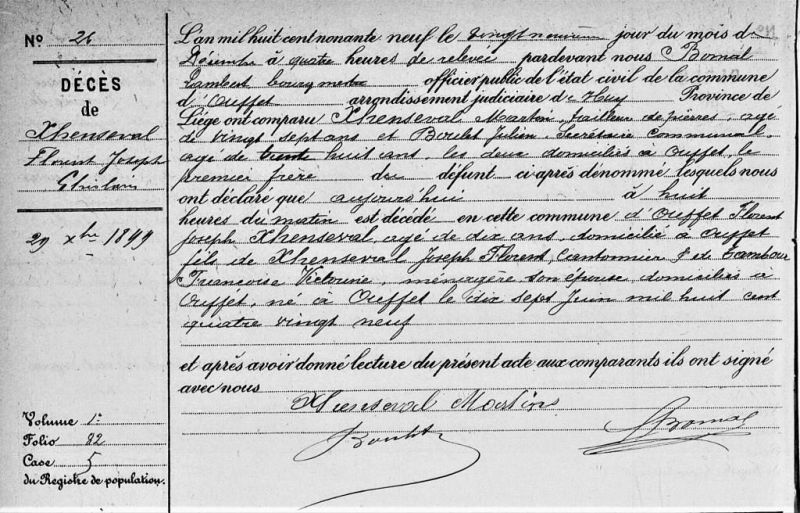 No 26
DÉCÈS
de
Xhenseval
Florent Joseph
Ghislain
29 xbre 1899
Volume 1o
Folio 82
Case 5
du Registre de population.
L'an mil huit cent nonante neuf le vingt neuf jour du mois de
Décembre à quatre heures de relevée pardevant nous Bomal
Lambert bourgmestre officier public de l'état civil de la commune
d'Ouffet arrondissement judiciaire de Huy Province de
Liége ont comparu Xhenseval Martin, tailleur de pierres, agé
de vingt sept ans et Boulet Julien, Secrétaire Communal,
agé de trente huit ans, les deux domiciliés à Ouffet, le
premier frère du défunt ci-après dénommé lesquels nous
ont déclaré que aujourd'hui à huit
heures du matin est décédé en cette commune d'Ouffet Florent
Joseph Xhenseval, agé de dix ans, domicilié à Ouffet
fils de Xhenseval Joseph Florent, Cantonnier & de Tambour
Françoise Victorine, ménagère son épouse, domiciliés à
Ouffet, né à Ouffet le dix sept Juin mil huit cent
quatre vingt neuf
et après avoir donné lecture du présent acte aux comparants ils ont signé
avec nous
Xhenseval Martin
Boulet
LBomal